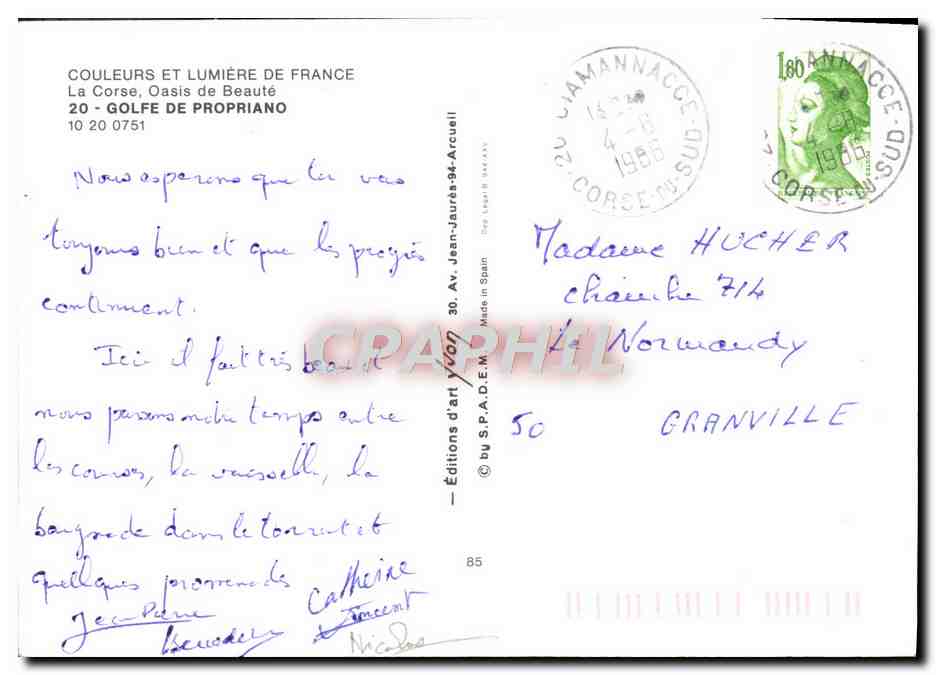 COULEURS ET LUMIÈRE DE FRANCE
La Corse, Oasis de Beauté
20 - GOLFE DE PROPRIANO
10 20 0751
Nous esperons que tu vas
toujours bien et que les progrès
continuent.
Ici il fait très beau et
nous passons notre temps entre
les courses, la vaisselle, la
baignade dans le torrent et
quelques promenades
Jean Pierre
Catherine
Vincent
Nicolas
85
— Éditions d'art yvon 30. Av. Jean-Jaurès-94-Arcueil
© by S.P.A.D.E.M. Made in Spain
20 CIAMANNACCE
4-8
1986
CORSE-DU-SUD
1,80
ANNACCE
4-8
1986
CORSE-DU-SUD
Madame HUCHER
Chambre 714
Le Normandy
50 GRANVILLE
CPAPHIL